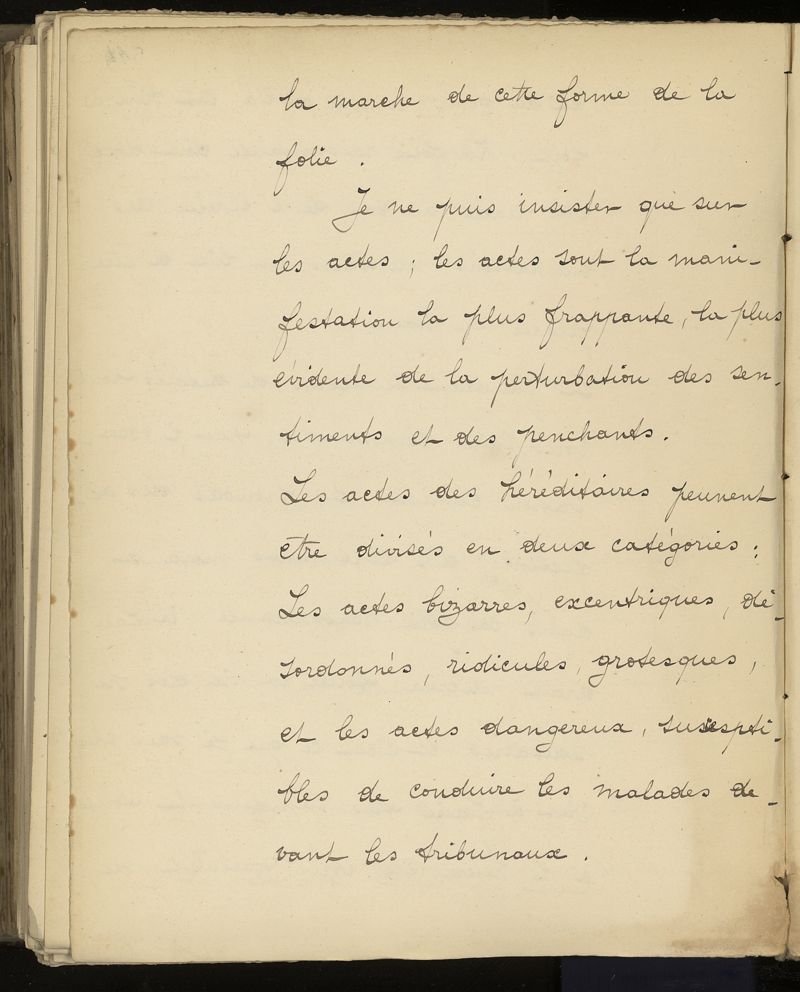 la marche de cette forme de la
folie .
Je ne puis insister que sur
les actes ; les actes sont la mani-
festation la plus frappante, la plus
évidente de la perturbation des sen-
timents et des penchants .
Les actes des héréditaires peuvent
être divisés en deux catégories :
Les actes bizarres, excentriques, dé-
sordonnés, ridicules, grotesques,
et les actes dangereux, suscepti-
bles de conduire les malades de-
vant les tribunaux .